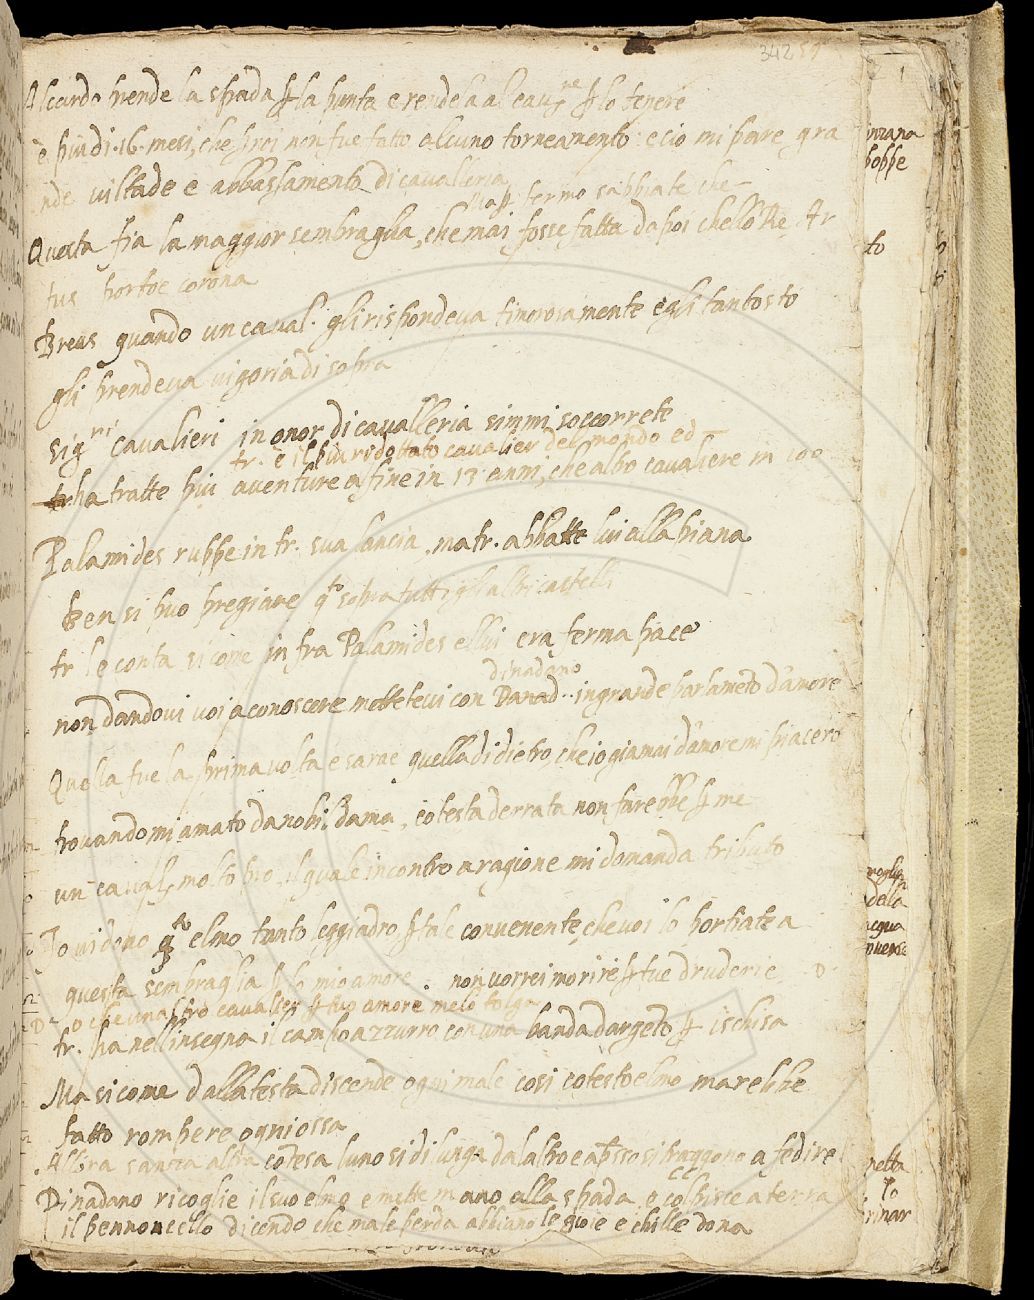 342 57
Alcardo prende la spada p la punta e rendela al cau.re p lo tenere
è piu di .16. mesi, che p noi non fue fatto alcuno torneamento: e cio mi pare gra
nde viltade e abbassamento di cavalleria
fermo sabbiate che
Questa fia la maggior sembraglia, che mai fosse fatta da poi chello Re Ar
tus portoe corona
Breus quando un caval. gli rispondeva timorosamente e gli tantosto
gli prendeva vigoria di sopra
Sig.ri cavalieri in onor di cavalleria simmi soccorrete
tr. è il piu ridottato cavalier del mondo ed
ha tratte piu aventure a fine in 13 anni, che altro cavaliere in 100
Palamides ruppe in tr. sua lancia, ma tr. abbatte lui alla piana
Ben si puo pregiare q.to sopra tutti gli altri castelli
tr le conta sicome in fra Palamides ellui era ferma pace
dinadano
non dandovi voi a conoscere mettetevi con Danad.. in grande parlameto d'amore
Quella fue la prima volta e sarae quella di dietro, che io giamai d'amore mi piacero
trovandomi amato da nobi. dama, cotesta derrata non farebbe p me
un caval. molto pro, il quale incontro a ragione mi domanda tributo
Io vi dono q.to elmo tanto leggiadro, p tale convenente, che voi lo portiate a
questa sembraglia p lo mio amore. non vorrei morire p tue druderie
o che un altro cavalier p suo amore melo tolga
tr. ha nell'insegna il campo azzurro con una banda d'argeto p ischisa
Ma sicome dalla testa discende ogni male cosi cotesto elmo m'arebbe
fatto rompere ogni ossa
Allora sanza altra contesa l'uno si dilunga dal altro e appsso si traggono a fedire
Dinadano ricoglie il suo elmo e mette mano alla spada e colpisce a terra
il pennoncello dicendo che male perda abbiano le gioie e chi lle dona